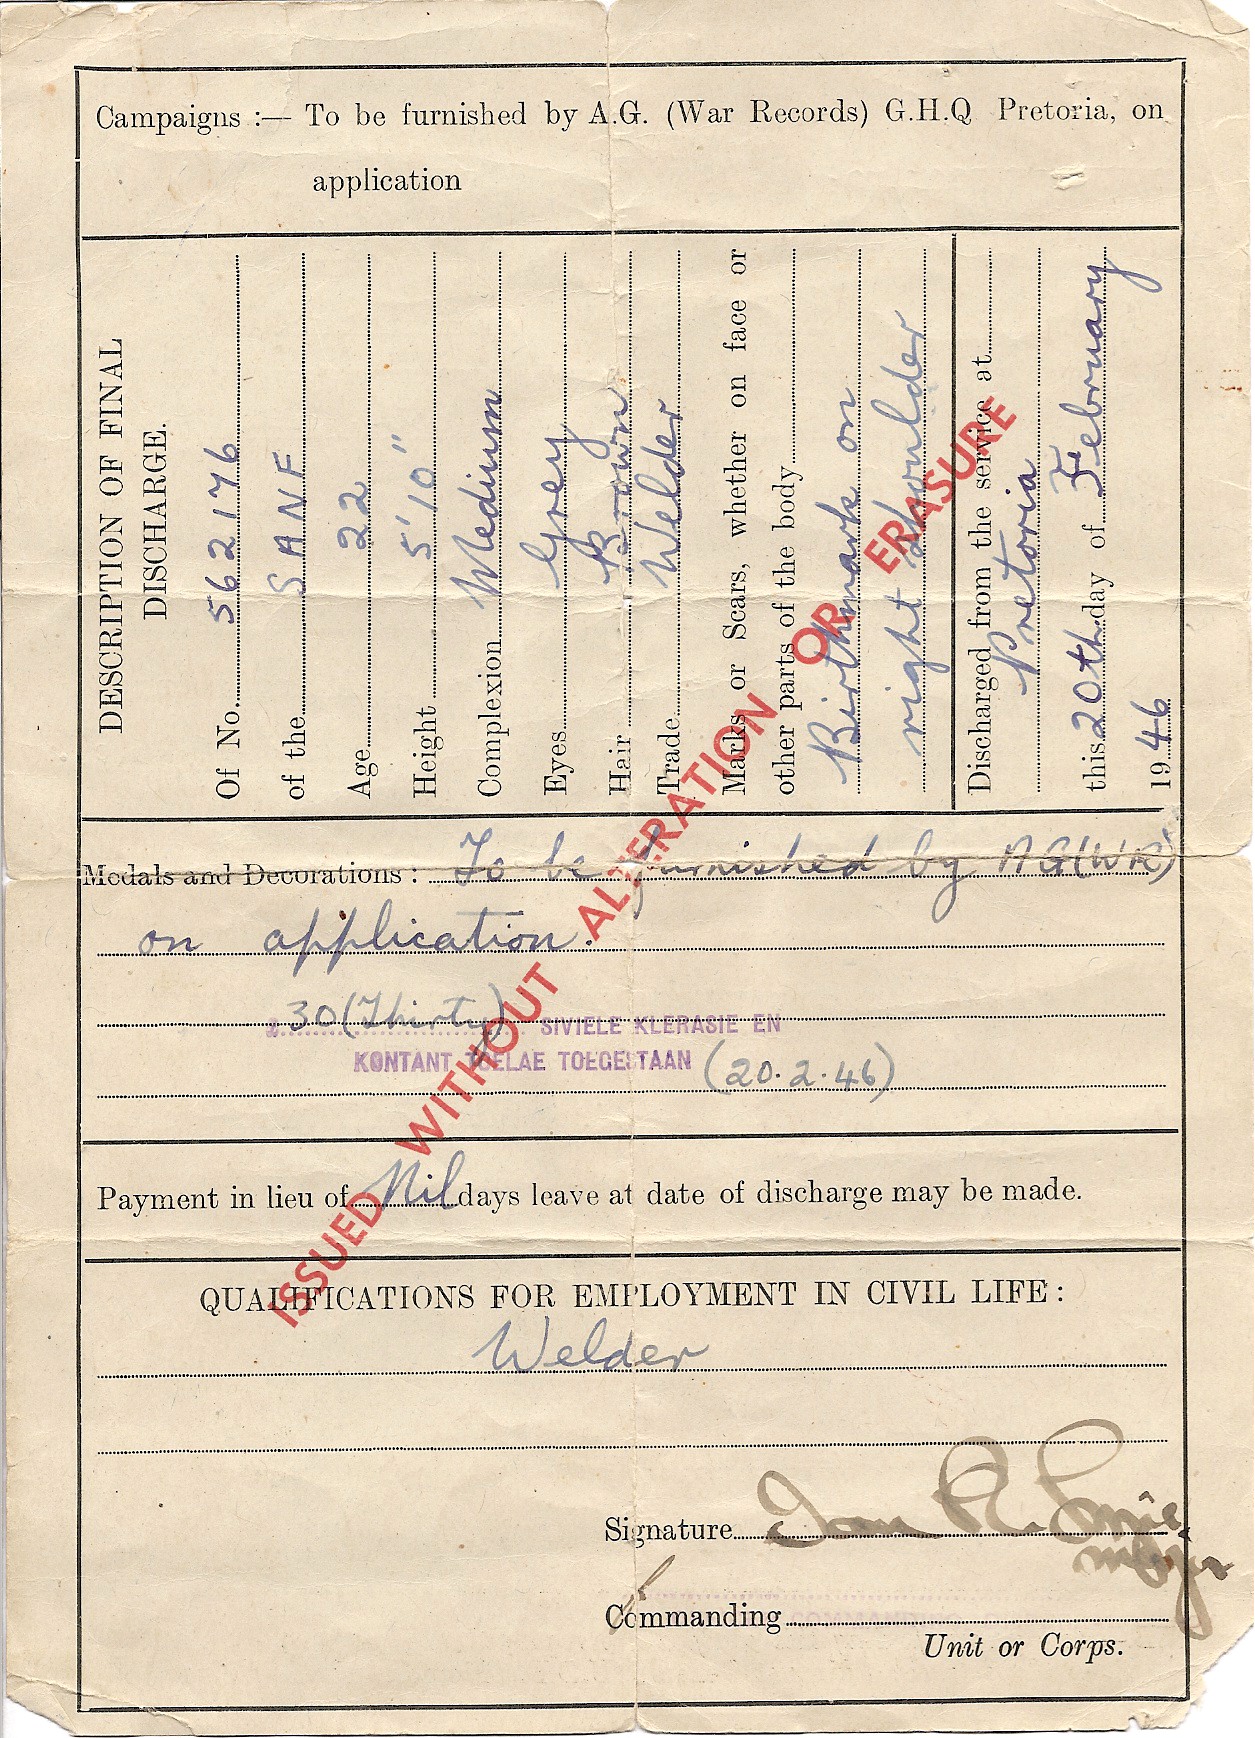 Campaigns :— To be furnished by A.G. (War Records) G.H.Q Pretoria, on
application
DESCRIPTION OF FINAL
DISCHARGE.
Of No. 562176
of the S A N F
Age 22
Height 5'10"
Complexion Medium
Eyes Grey
Hair Brown
Trade Welder
Marks or Scars, whether on face or
other parts of the body
Birthmark on
right shoulder
Discharged from the service at
Pretoria
this 20th day of February
1946
Medals and Decorations : To be furnished by AG(WR)
on application.
30 (Thirty) SIVIELE KLERASIE EN
KONTANT TOELAE TOEGESTAAN (20.2.46)
Payment in lieu of Nil days leave at date of discharge may be made.
QUALIFICATIONS FOR EMPLOYMENT IN CIVIL LIFE :
Welder
Signature
Commanding
Unit or Corps.
ISSUED WITHOUT ALTERATION OR ERASURE